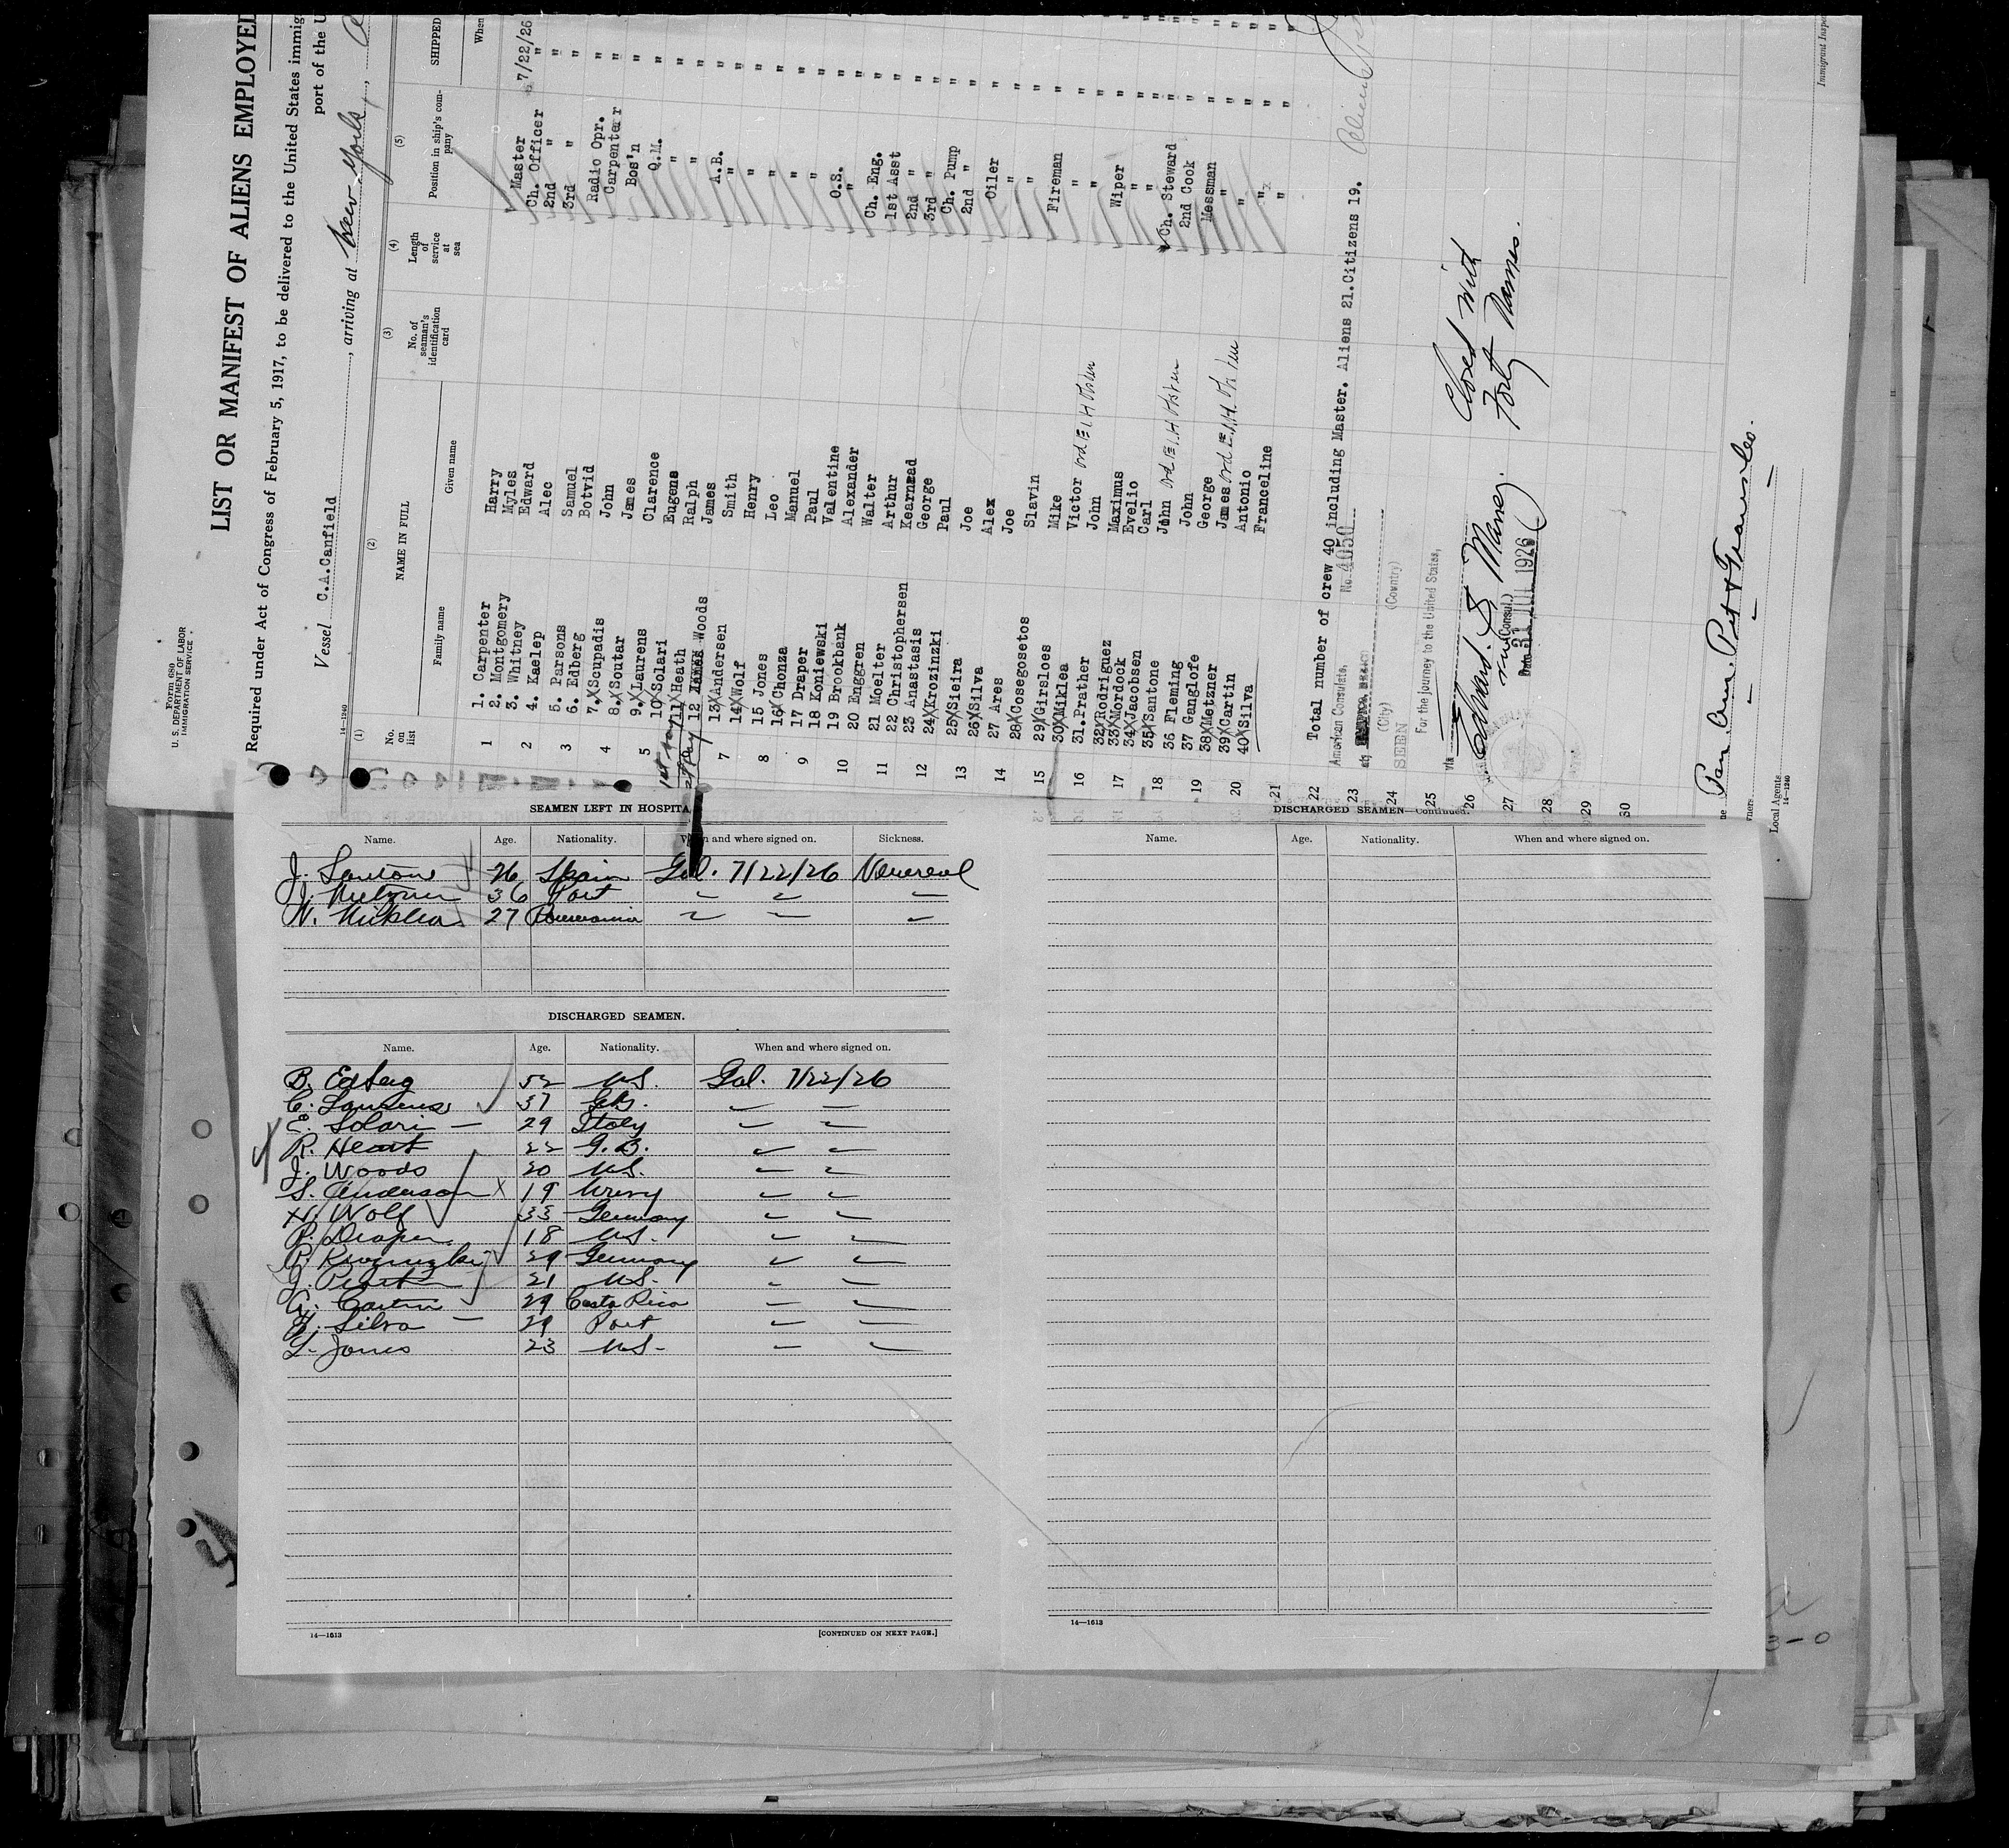 Form 680
U. S. DEPARTMENT OF LABOR
IMMIGRATION SERVICE
LIST OR MANIFEST OF ALIENS EMPLOYED
Required under Act of Congress of February 5, 1917, to be delivered to the United States immig
port of the U
Vessel C.A.Canfield, arriving at New York,
14-1240
(1) (2) (3) (4) (5)
No. on list
NAME IN FULL
Family name Given name
No. of seaman's identification card
Length of service at sea
Position in ship's company
SHIPPED
When
1. Carpenter Harry Master 7/22/26
2. Montgomery Myles Ch. Officer "
3. Whitney Edward 2nd " "
4. Kaelep Alec 3rd " "
5. Parsons Samuel Radio Opr. "
6. Edberg Botvid Carpenter "
7. X Scupadis John Bos'n "
8. X Soutar James Q.M. "
9. X Laurens Clarence " "
10 X Solari Eugene " "
11 Heath Ralph A.B. "
12 Woods James " "
13 X Andersen Smith " "
14 X Wolf Henry " "
15 Jones Leo " "
16 X Chonza Manuel " "
17 Draper Paul O.S. "
18 Koniewski Valentine " "
19 Brookbank Alexander
20 Enggren Walter Ch. Eng. "
21 Moelter Arthur 1st Asst "
22 Christophersen Kearnead 2nd " "
23 Anastasis George 3rd " "
24 X Krozinzki Paul Ch. Pump "
25 X Sieira Joe 2nd " "
26 X Silva Alex Oiler "
27 Ares Joe " "
28 X Cosegosetos Slavin " "
29 X Girsloes Mike Fireman "
30 X Miklea Victor " "
31. Prather John " "
32 X Rodriguez Maximus Wiper "
33 X Mordock Evelio " "
34 X Jacobsen Carl " "
35 X Santone John Ch. Steward "
36 Fleming John 2nd Cook "
37 Ganglofe George Messman "
38 X Metzner James " "
39 X Cartin Antonio " "
40 X Silva Franceline " "
1
2
3
4
5
7
8
9
10
11
12
13
14
15
16
17
18
19
20
21
22
23
24
25
26
27
28
29
30
Total number of crew 40 including Master. Aliens 21. Citizens 19.
American Consulate,
No. 4050
(City) (Country)
SEEN
For the journey to the United States,
via
Edward S Maney
Vice (Consul.)
Date 31 JUL 1926
Closed with
Forty Names.
Pan Am. Pet & Trans Co.
Local Agents
14-1240
Immigrant Inspe
SEAMEN LEFT IN HOSPITA
Name. Age. Nationality. When and where signed on. Sickness.
J. Santone 26 Spain Gal. 7/22/26 Venereal
J. Metzner 36 Port " " "
V. Miklea 27 Roumania " " "
DISCHARGED SEAMEN.
Name. Age. Nationality. When and where signed on.
B. Edberg 52 US. Gal. 7/22/26
C. Laurens 37 " "
E. Solari 29 Italy " "
R. Heart 22 G.B. " "
J. Woods 20 US. " "
S. Anderson X 19 " "
H. Wolf 33 Germany " "
P. Draper 18 US. " "
P. Krozinzki 29 Germany " "
J. 21 US. " "
A. Cartin 29 Costa Rica " "
F. Silva 29 Port " "
L. Jones 23 US- " "
14—1613
[CONTINUED ON NEXT PAGE.]
DISCHARGED SEAMEN—Continued.
Name. Age. Nationality. When and where signed on.
14—1613
3-0